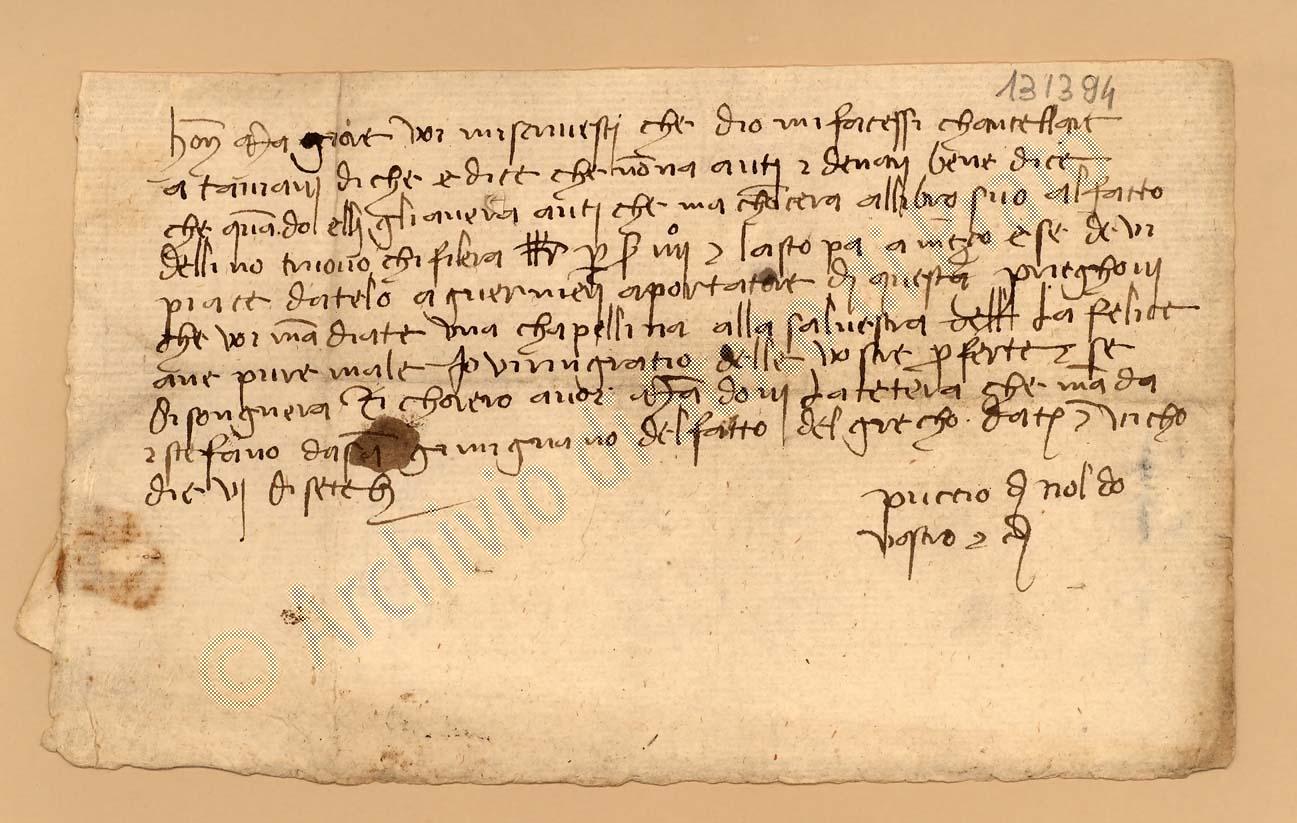 131394
hon magiore voi miscrivesti che dio mi facessi chancellare
a di che e dice che nona auti i denari bene dice
che quando elli gli avera auti che ma chancera allibro suo al fatto
dellino truovo chi filera p s iiii i lasto pa a e se de vi
piace datelo a guernieri aportatore di questa prieghovi
che voi mandiate una chapellina alla salvestra dell la felice
ave pure male Io vi ringratio delle vostre proferte i se
bisongnera richorero a voi mandovi la letera che manda
istefano da san gimignano del fatto del grecho dat i vicho
die vj di seteb
puccio d noldo
vostro i
© Archivio di